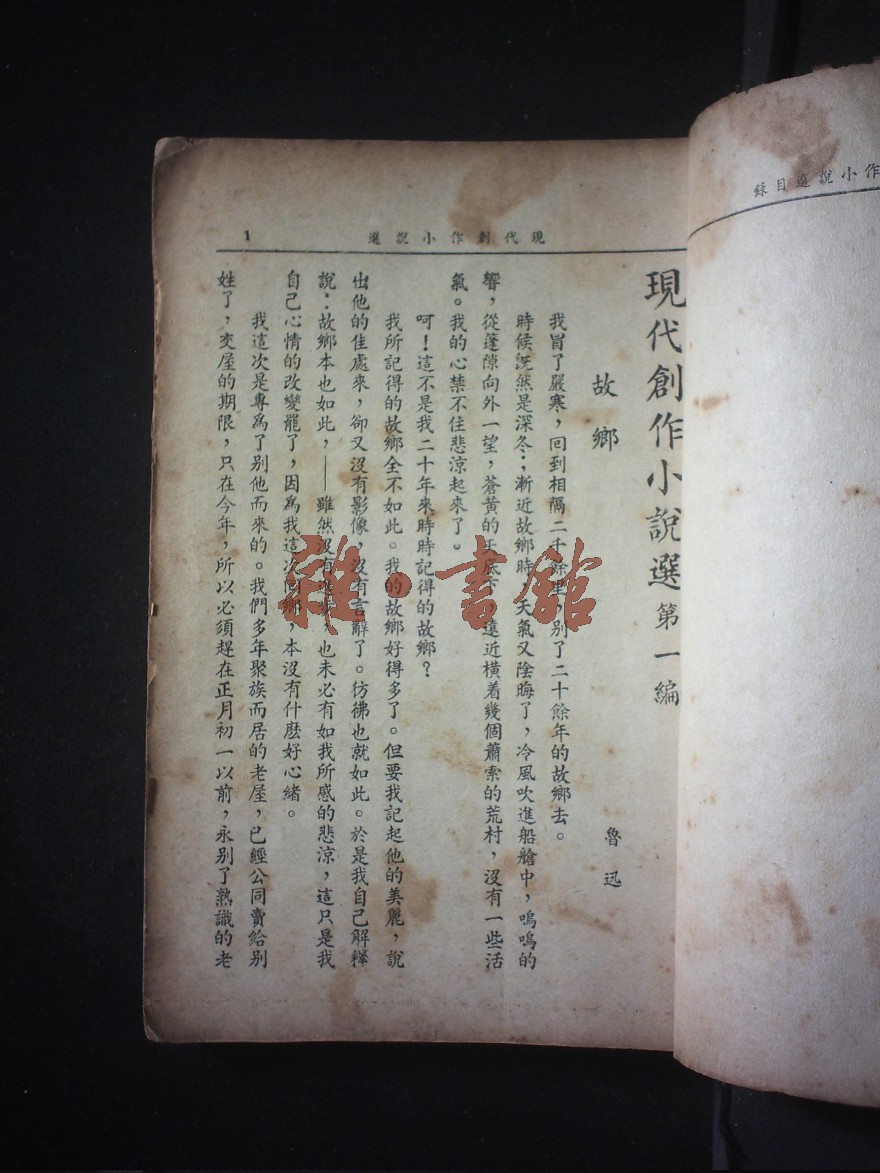 作小說選目錄
現代創作小說選
1
現代創作小說選 第一編
故鄉
魯迅
我冒了嚴寒，回到相隔二千餘里，別了二十餘年的故鄉去。
時候既然是深冬；漸近故鄉時，天氣又陰晦了，冷風吹進船艙中，嗚嗚的
響，從蓬隙向外一望，蒼黃的天底下，遠近橫着幾個蕭索的荒村，沒有一些活
氣。我的心禁不住悲涼起來了。
呵！這不是我二十年來時時記得的故鄉？
我所記得的故鄉全不如此。我的故鄉好得多了。但要我記起他的美麗，說
出他的佳處來，卻又沒有影像，沒有言辭了。彷彿也就如此。於是我自己解釋
說：故鄉本也如此，——雖然沒有，也未必有如我所感的悲涼，這只是我
自己心情的改變罷了，因爲我這次回鄉，本沒有什麼好心緒。
我這次是專爲了別他而來的。我們多年聚族而居的老屋，已經公同賣給別
姓了，交屋的期限，只在今年，所以必須趕在正月初一以前，永別了熟識的老
雜·書館